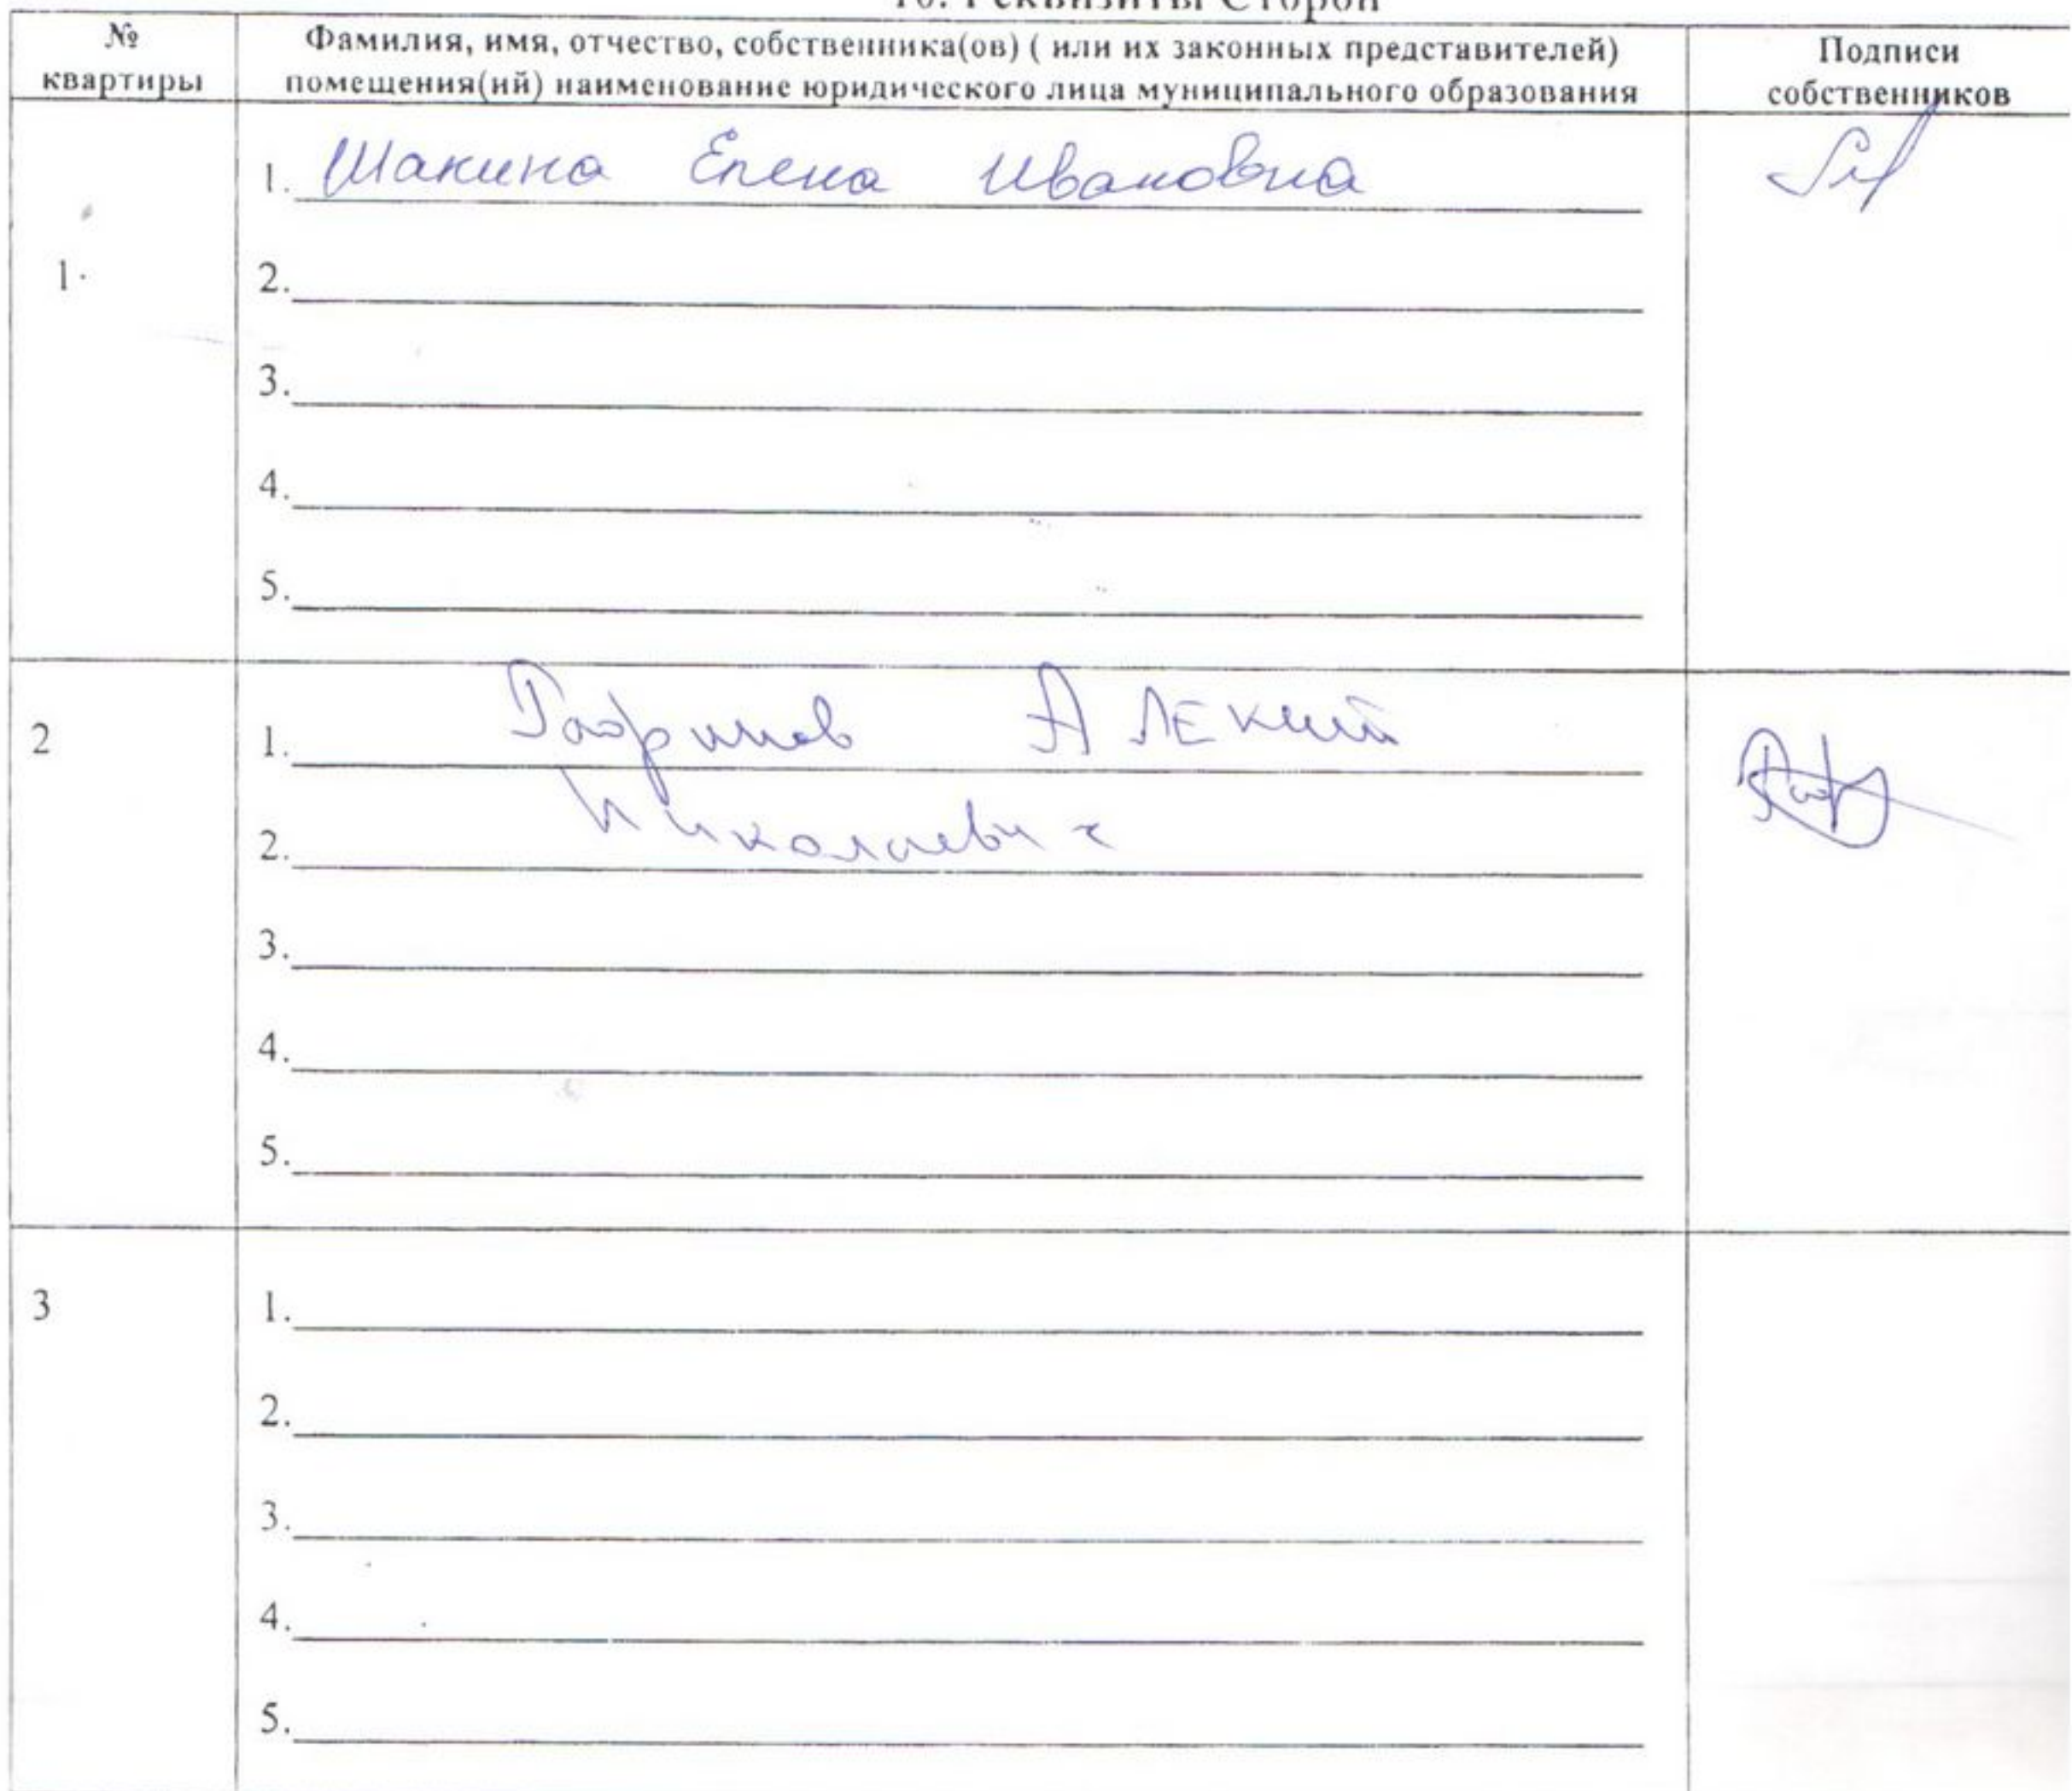 10. Реквизиты Сторон
№ квартиры
Фамилия, имя, отчество, собственника(ов) ( или их законных представителей)
помещения(ий) наименование юридического лица муниципального образования
Подписи
собственников
1.
1. Шакина Елена Ивановна
2.
3.
4.
5.
2
1. АЛЕКсей
2. Николаевич
3.
4.
5.
3
1.
2.
3.
4.
5.